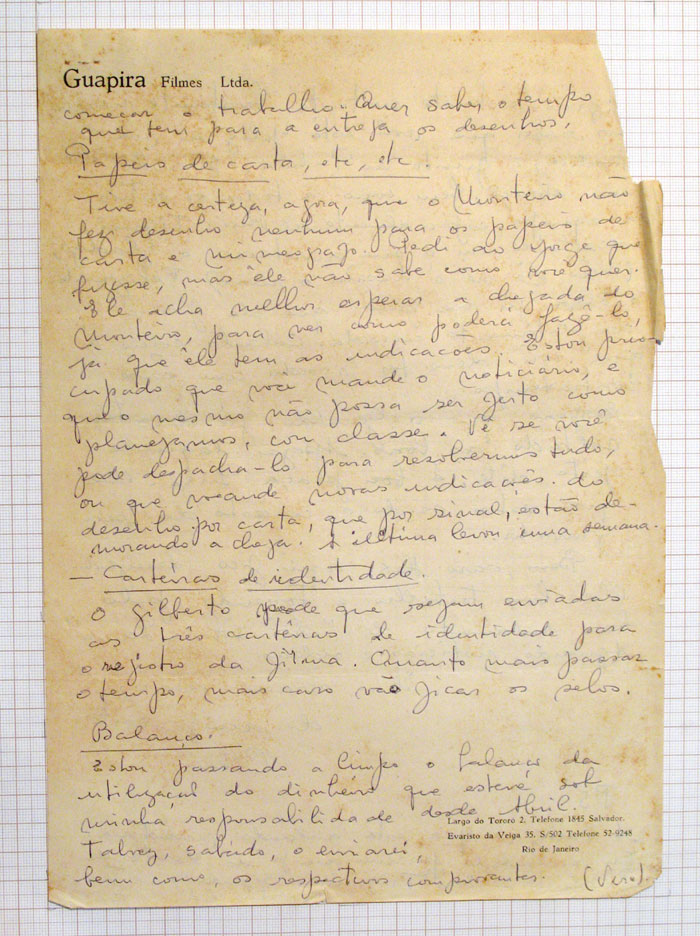 Guapira Filmes Ltda.
começar o trabalho. Quer saber o tempo
que tem para a entrega os desenhos.
Papeis de carta, etc, etc.
Tive a certeza, agora, que o Monteiro não
fez desenho nenhum para os papeis de
carta e mimeografo. Pedi ao Jorge que
fizesse, mas êle não sabe como você quer.
Ele acha melhor esperar a chegada do
Monteiro, para ver como poderá fazê-lo,
já que êle tem as indicações. Estou preo-
cupado que você mande o noticiário, e
que o mesmo não possa ser feito como
planejamos, com classe. Vê se você
pode despacha-lo para resolvermos tudo,
ou que mande novas indicações do
desenho por carta, que por sinal, estão de-
morando a chega. A última levou uma semana.
— Carteiras de identidade.
O Gilberto pede que sejam enviadas
as três carteiras de identidade para
o registro da firma. Quanto mais passar
o tempo, mais caro vão ficar os selos.
Balanço.
Estou passando a limpo o balanço da
utilização do dinheiro que esteve sob
minha responsabilidade desde Abril.
Largo do Tororo 2. Telefone 1845 Salvador.
Evaristo da Veiga 35. S/502 Telefone 52-9248
Rio de Janeiro
Talvez, sabado, o enviarei,
bem como, os respectivos comprovantes.